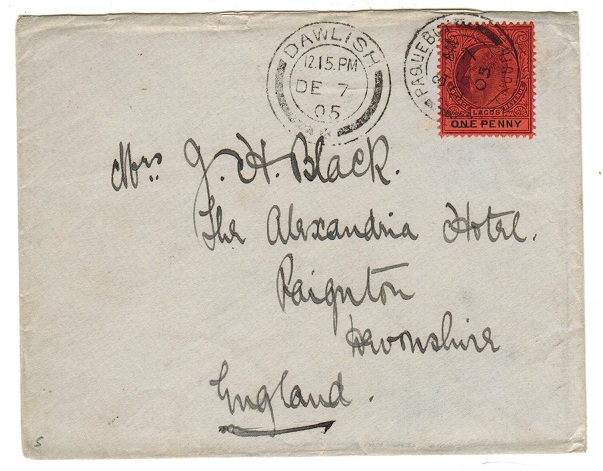 DAWLISH
12.15.PM
DE 7
05
PAQUEBOT
LAGOS
ONE PENNY
Mrs J. H. Black.
The Alexandria Hotel.
Paignton
Devonshire
England.